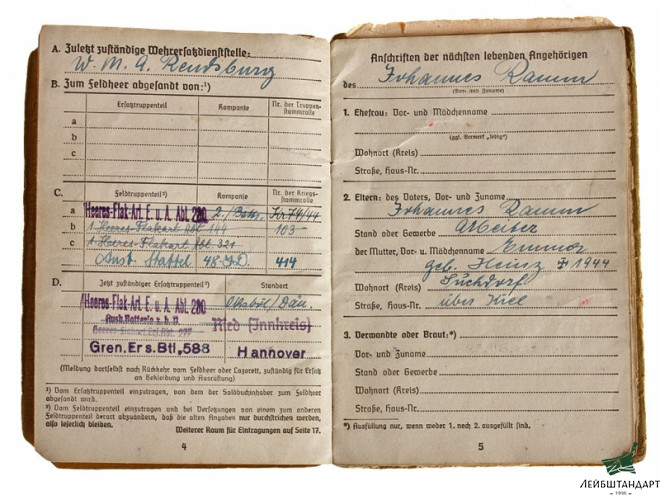 A. Zuletzt zuständige Wehrersatzdienststelle:
W. M. A. Rendsburg
B. Zum Feldheer abgesandt von:¹)
Ersatztruppenteil Kompanie Nr. der Truppen-
stammrolle
a
b
c
C. Feldtruppenteil²) Kompanie Nr. der Kriegs-
stammrolle
a Heeres-Flak-Art. E. u. A. Abt. 280 2./Battr. Kr 74/44
b 1. Heeres-Flakart Abt 144 103
c 1. Heeres-Flakart Abt. 321
Aust. Staffel 48. I.D. 414
D. Jetzt zuständiger Ersatztruppenteil Standort
Heeres-Flak-Art. E. u. A. Abt. 280 Oksböl/Dän.
Ried (Innkreis)
Gren.Ers.Btl. 588 Hannover
(Meldung dortselbst nach Rückkehr vom Feldheer oder Lazarett, zuständig für Ersatz
an Bekleidung und Ausrüstung)
¹) Vom Ersatztruppenteil einzutragen, von dem der Soldbuchinhaber zum Feldheer
abgesandt wird.
²) Vom Feldtruppenteil einzutragen und bei Versetzungen von einem zum anderen
Feldtruppenteil derart abzuändern, daß die alten Angaben nur durchstrichen werden,
also leserlich bleiben.
Weiterer Raum für Eintragungen auf Seite 17.
4
Anschriften der nächsten lebenden Angehörigen
des Johannes Ramm
(Vor- und Zuname)
1. Ehefrau: Vor- und Mädchenname
(ggf. Vermerk „ledig“)
Wohnort (Kreis)
Straße, Haus-Nr.
2. Eltern: des Vaters, Vor- und Zuname
Johannes Ramm
Stand oder Gewerbe Arbeiter
der Mutter, Vor- u. Mädchenname Emma
geb. Heinz 1944
Wohnort (Kreis) Suchdorf
Straße, Haus-Nr. über Kiel
3. Verwandte oder Braut:*)
Vor- und Zuname
Stand oder Gewerbe
Wohnort (Kreis)
Straße, Haus-Nr.
*) Ausfüllung nur, wenn weder 1. noch 2. ausgefüllt sind.
5
ЛЕЙБШТАНДАРТ